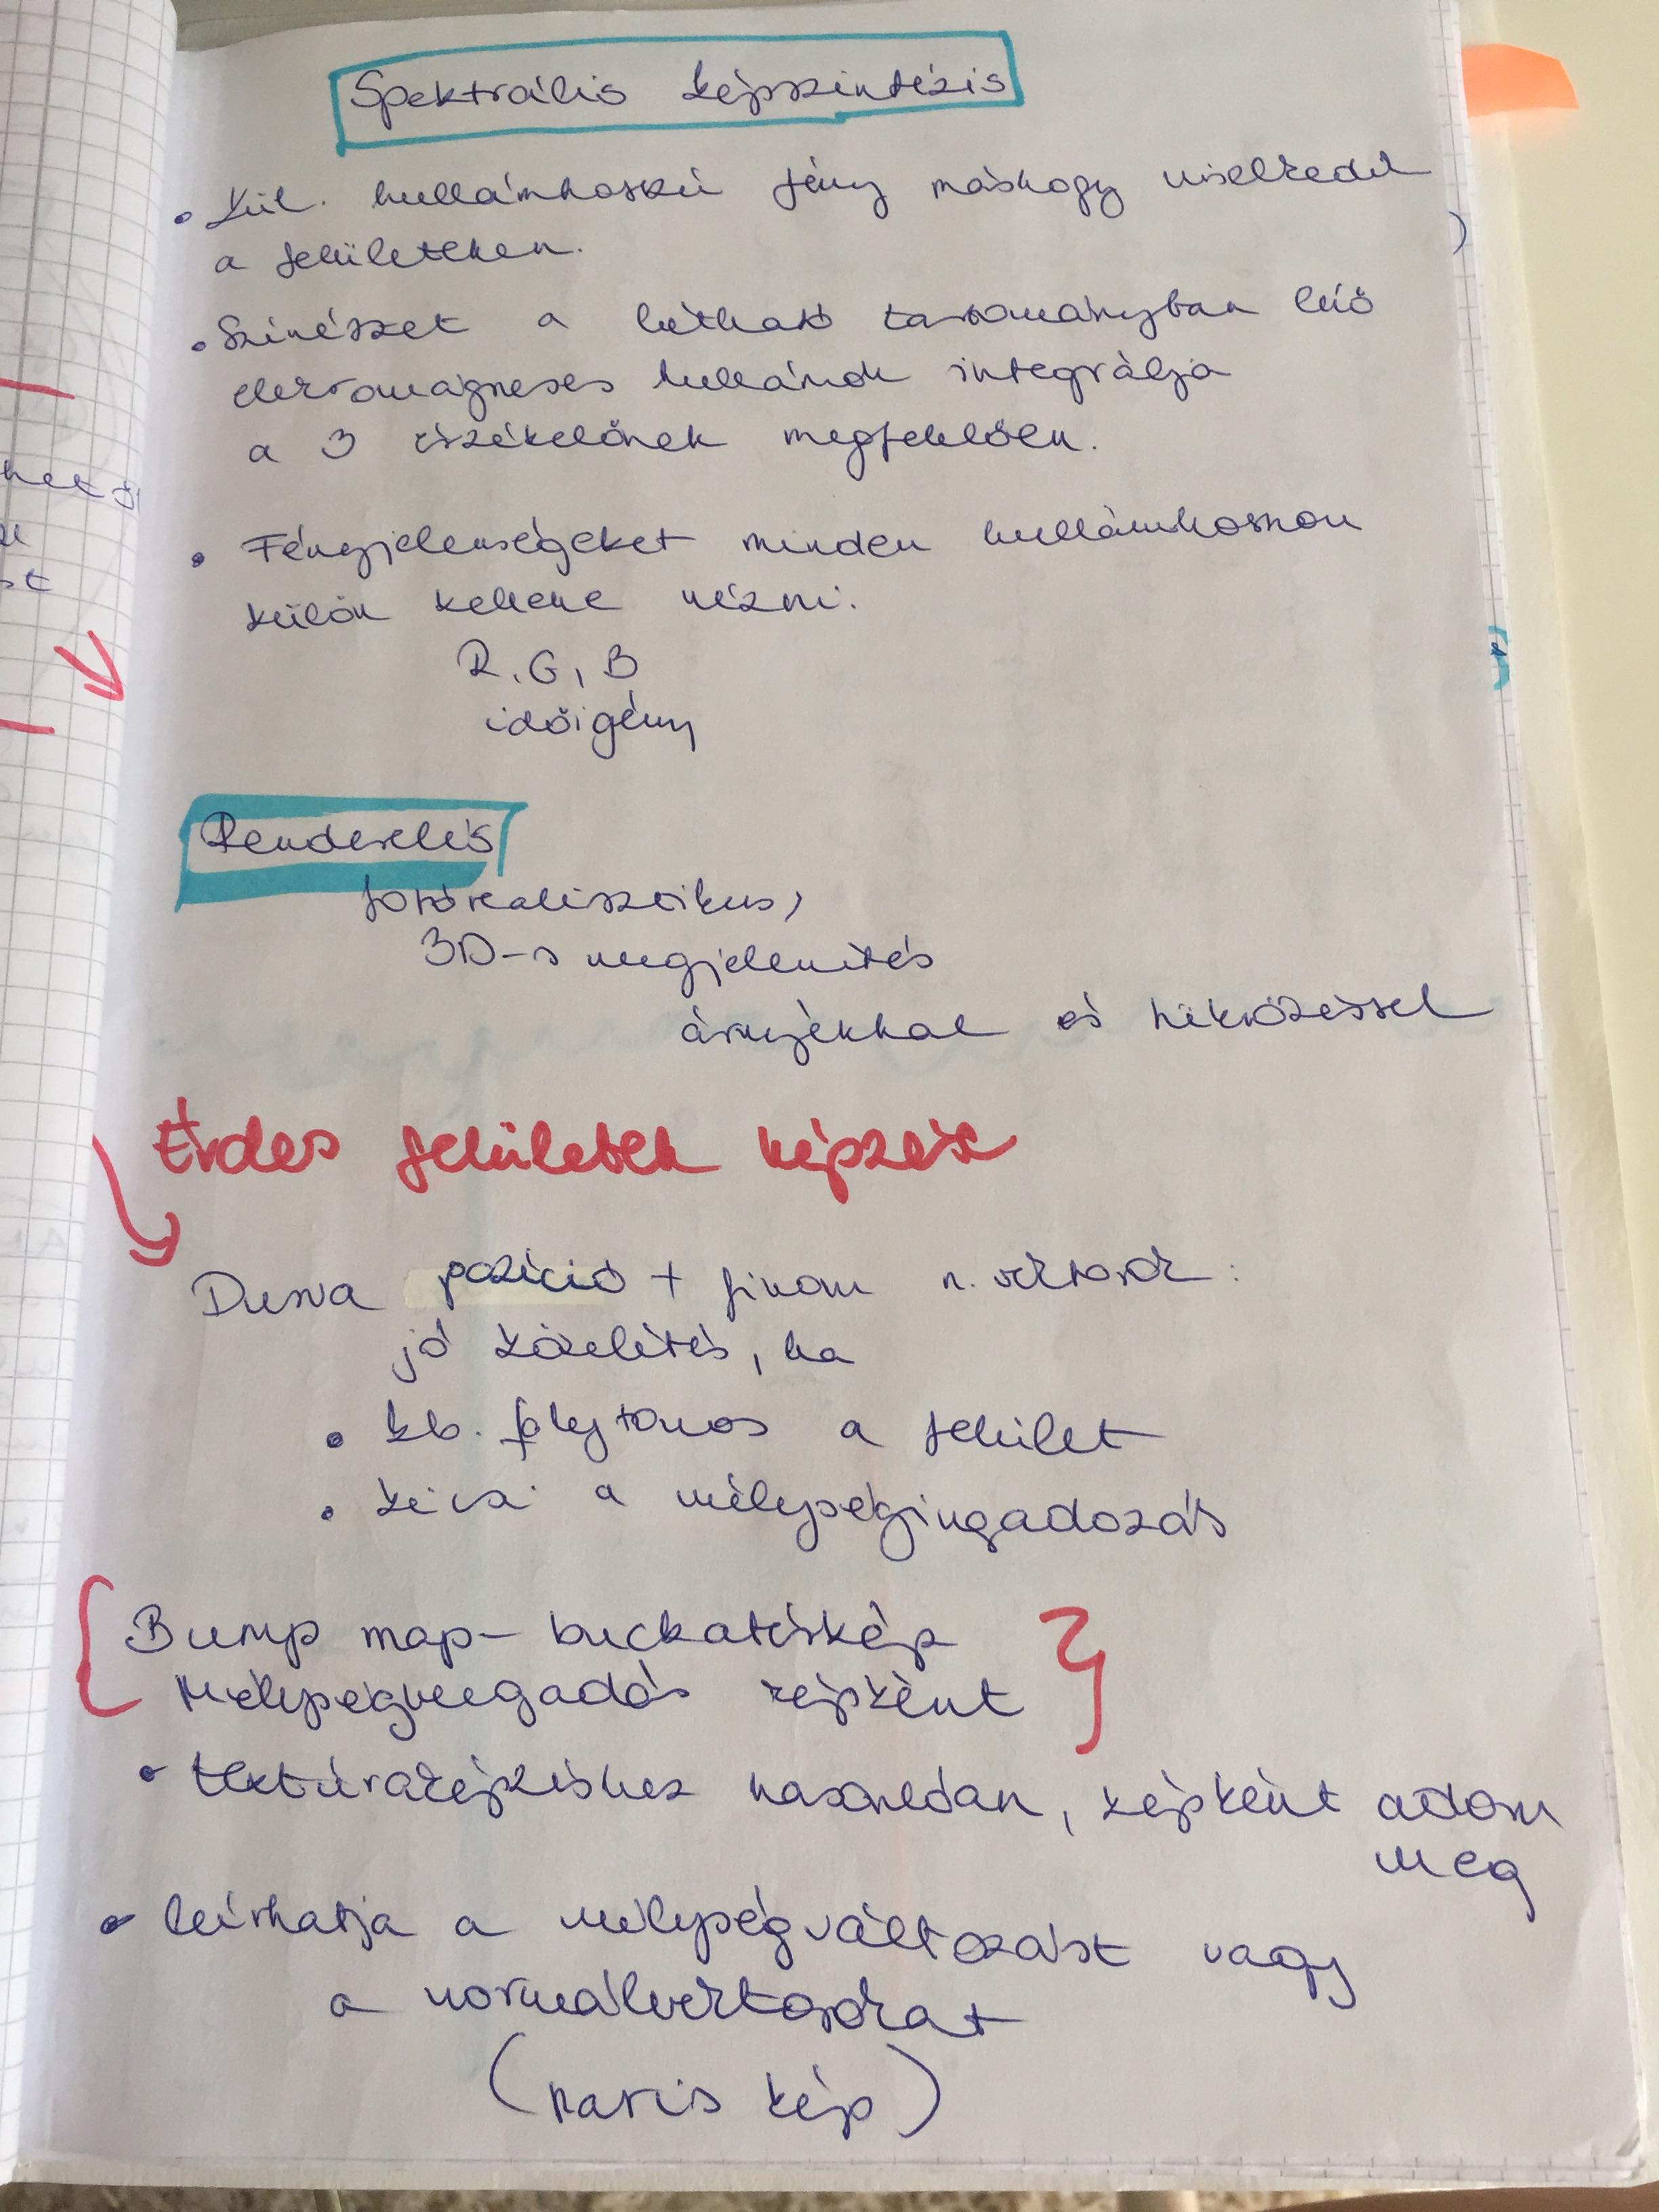 Spektrális képszintézis
• Kül. hullámhosszú fény máshogy viselkedik
a felületeken.
• Színérzet a látható tartományban lévő
elektromágneses hullámok integrálja
a 3 érzékelőnek megfelelően.
• Fényjelenségeket minden hullámhosszon
külön kellene nézni.
R, G, B
időigény
Renderelés
fotórealisztikus,
3D-s megjelenítés
árnyékkal és tükrözéssel
Érdes felületek képzése
Durva pozíció + finom n. vektorok:
jó közelítés, ha
• kb. folytonos a felület
• kicsi a mélységingadozás
Bump map - buckatérkép
Mélység megadás képként
• textúraképzéshez hasonlóan, képként adom
meg
• leírhatja a mélységváltozást vagy
a normálvektorokat
( kép)